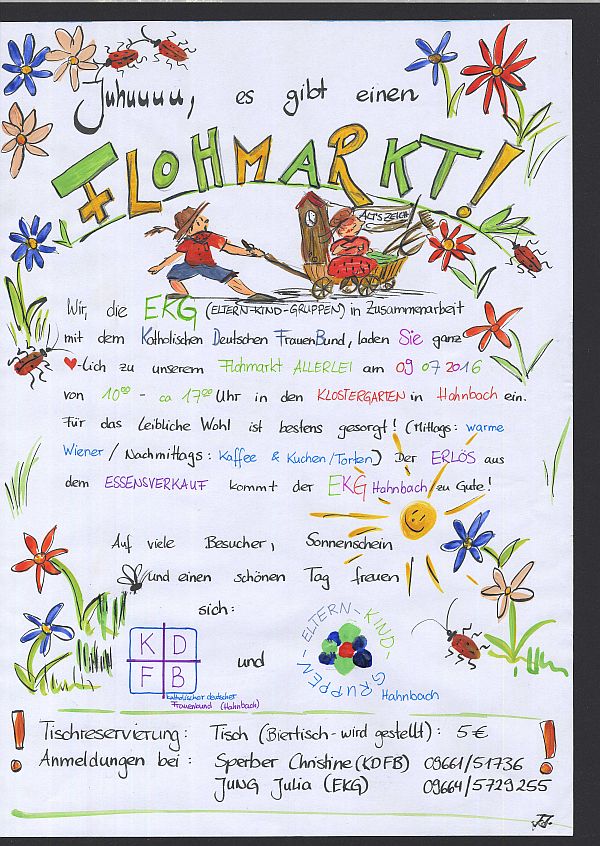 Juhuuuu, es gibt einen
FLOHMARKT!
ALT'S ZEICH
Wir, die EKG (ELTERN-KIND-GRUPPEN) in Zusammenarbeit
mit dem Katholischen Deutschen FrauenBund, laden Sie ganz
♥-lich zu unserem Flohmarkt ALLERLEI am 09 07 2016
von 10⁰⁰ - ca 17⁰⁰ Uhr in den KLOSTERGARTEN in Hahnbach ein.
Für das leibliche Wohl ist bestens gesorgt! (Mittags: warme
Wiener / Nachmittags: Kaffee & Kuchen/Torten) Der ERLÖS aus
dem ESSENSVERKAUF kommt der EKG Hahnbach zu Gute!
Auf viele Besucher, Sonnenschein
und einen schönen Tag freuen
sich:
KD
FB
katholischer deutscher
Frauenbund (Hahnbach)
und
ELTERN-KIND-GRUPPEN-
Hahnbach
! Tischreservierung: Tisch (Biertisch-wird gestellt): 5€ !
Anmeldungen bei: Sperber Christine (KDFB) 09661/51736
JUNG Julia (EKG) 09664/5729255
J.J.